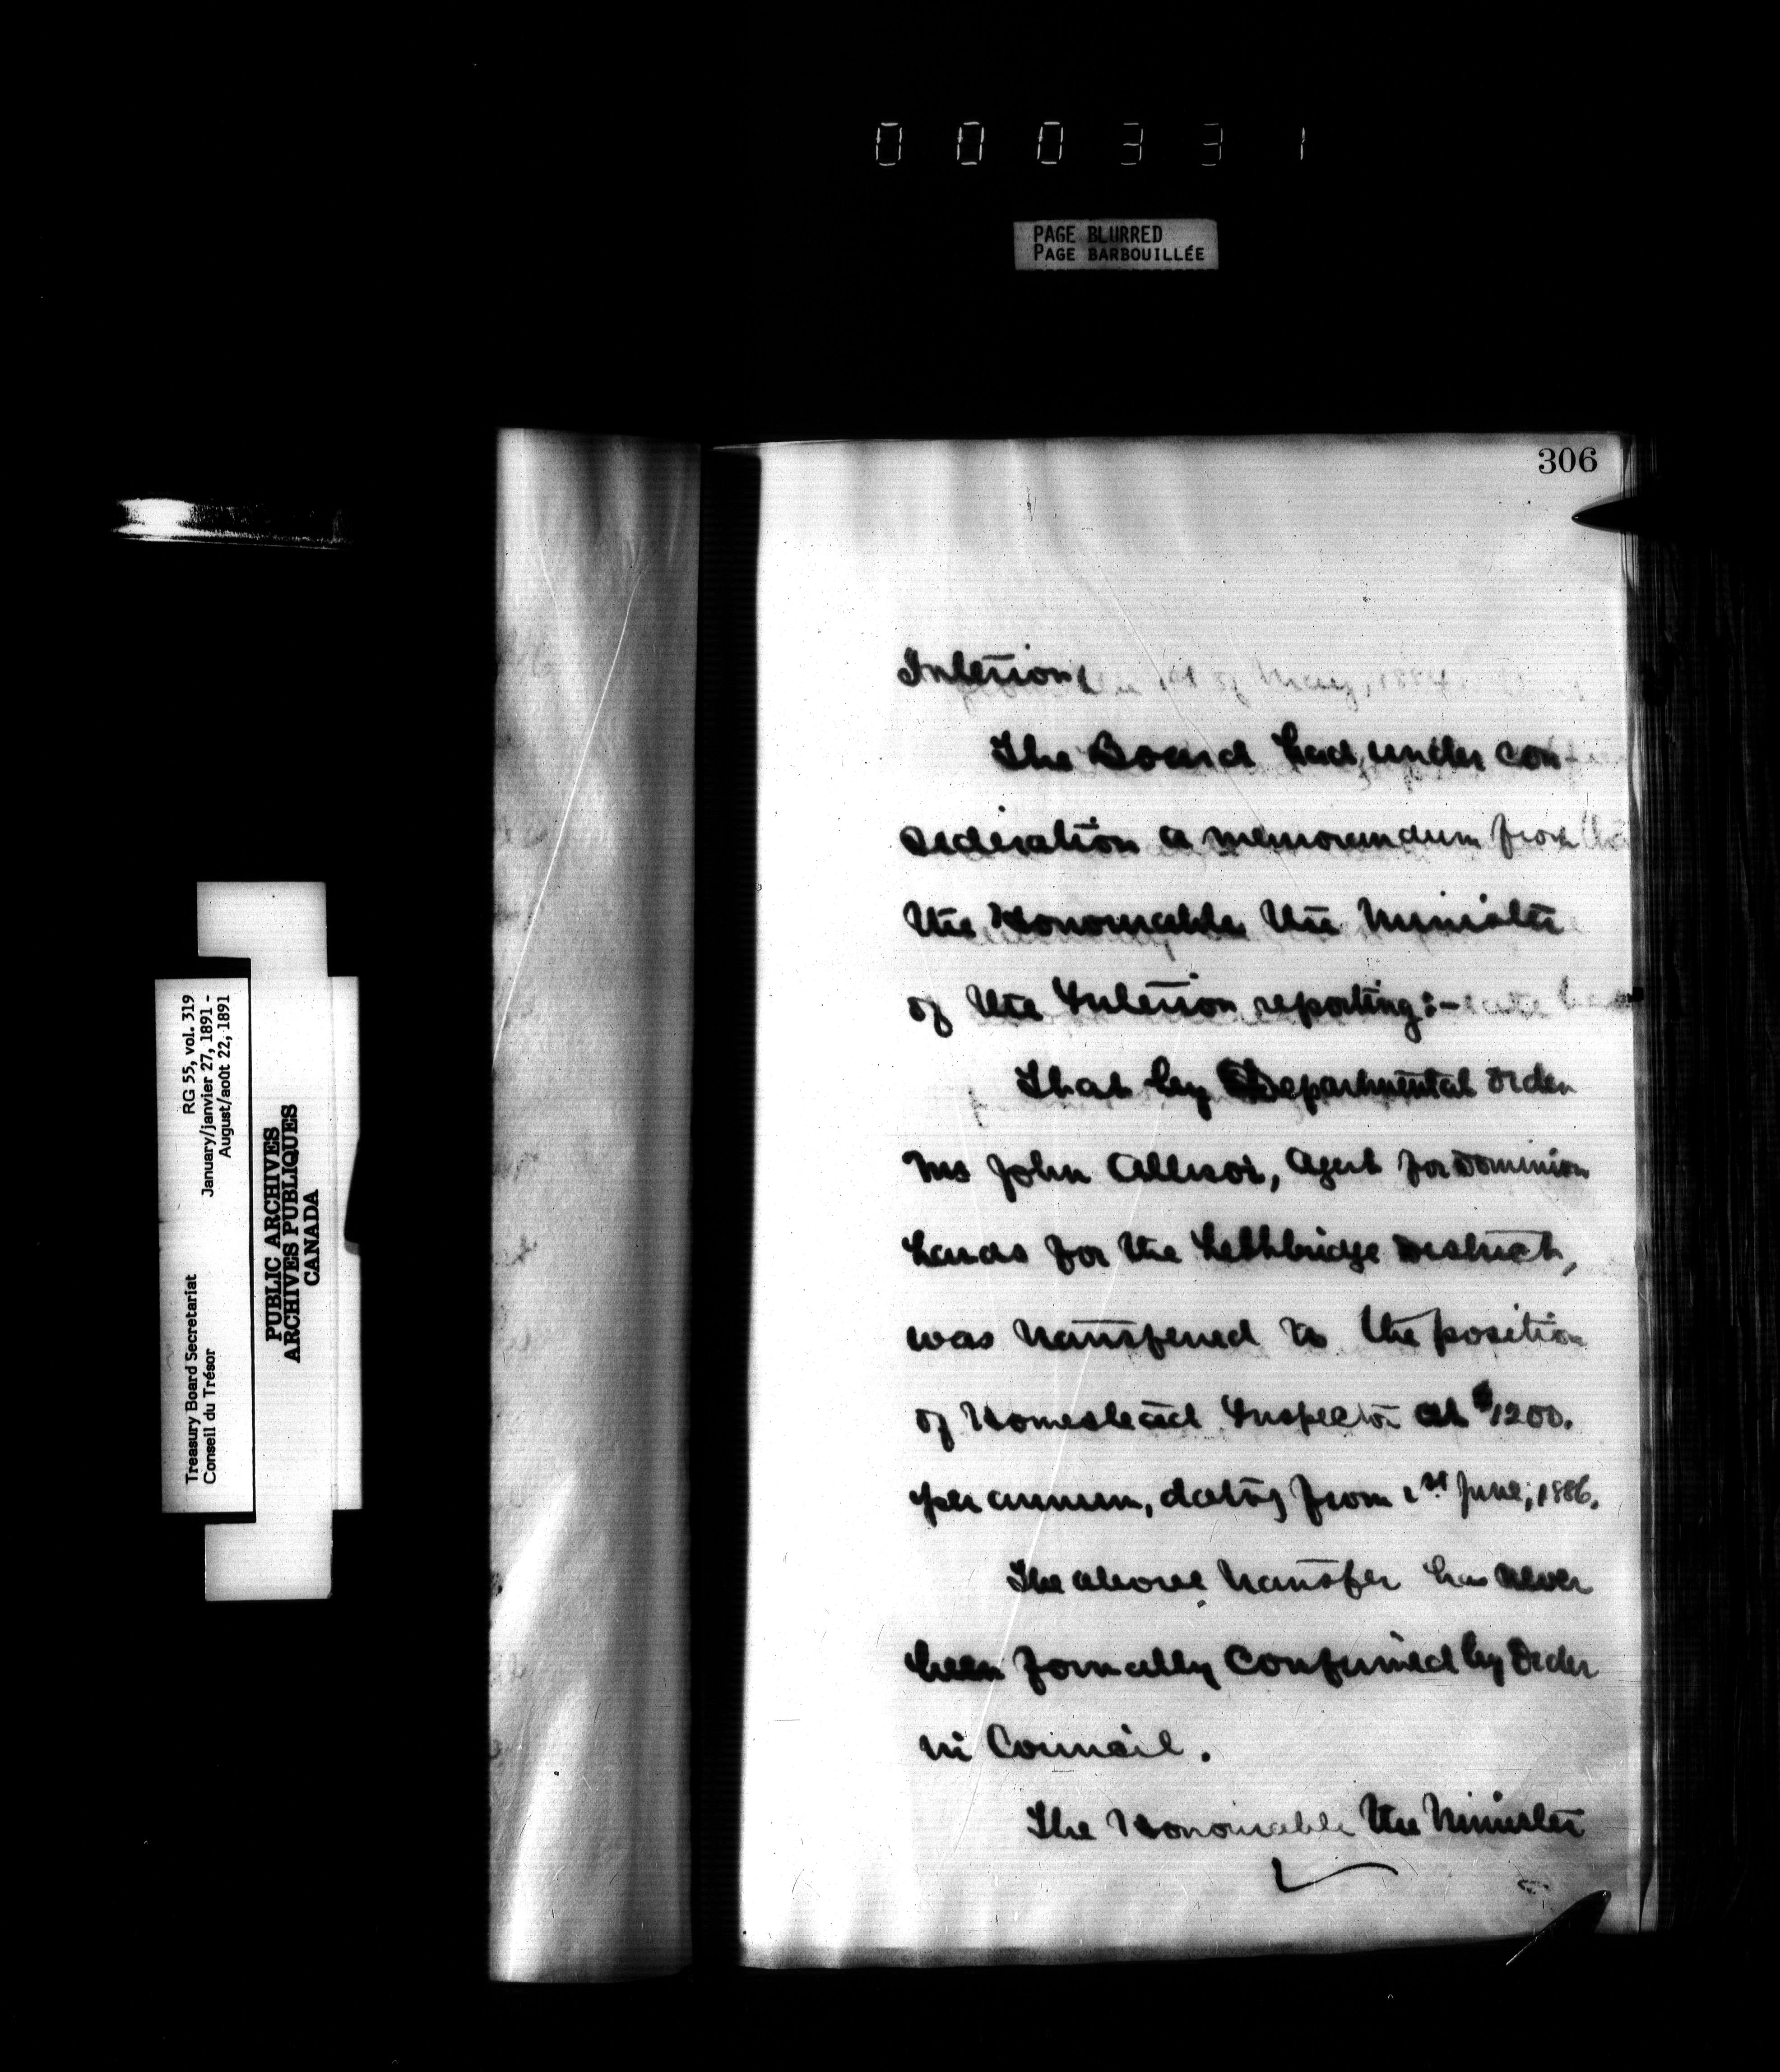 000331
PAGE BLURRED
PAGE BARBOUILLÉE
306
Interior,
The Board had under con-
sideration a memorandum from
the Honourable the Minister
of the Interior reporting:-
That by Departmental Order
Mr John Allison, Agent for Dominion
Lands for the Lethbridge District,
was transferred to the position
of Homestead Inspector at $1200.
per annum, dating from 1st June, 1886.
The above transfer has never
been formally confirmed by Order
in Council.
The Honourable the Minister
Treasury Board Secretariat RG 55, vol. 319
Conseil du Trésor January/janvier 27, 1891 -
August/août 22, 1891
PUBLIC ARCHIVES
ARCHIVES PUBLIQUES
CANADA